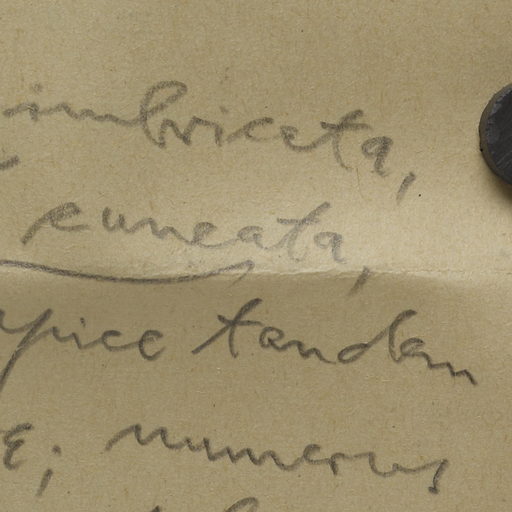 imbricata,
cuneata,
apice tandem
e; numerus